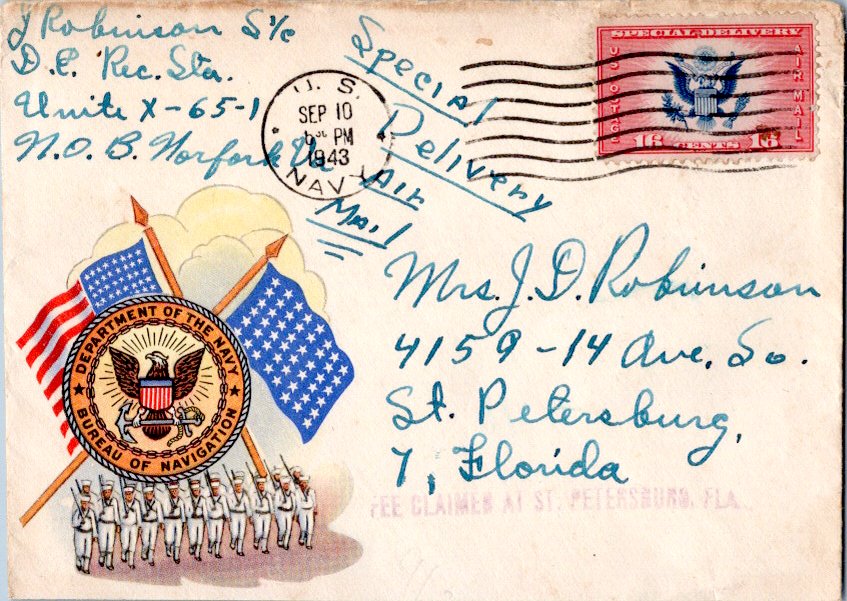 J Robinson S 1/c
D.E. Rec. Sta.
Unite X-65-1
N.O.B. Norfork Va
Special
Delivery
Air
Mail
U.S.
SEP 10
PM
1943
NAVY
SPECIAL DELIVERY
US POTGE
AIR MAIL
16 CENTS 16
Mrs. J. D. Robinson
4159-14 Ave. So.
St. Petersburg,
7, Florida
FEE CLAIMED AT ST. PETERSBURG, FLA.
DEPARTMENT OF THE NAVY
BUREAU OF NAVIGATION